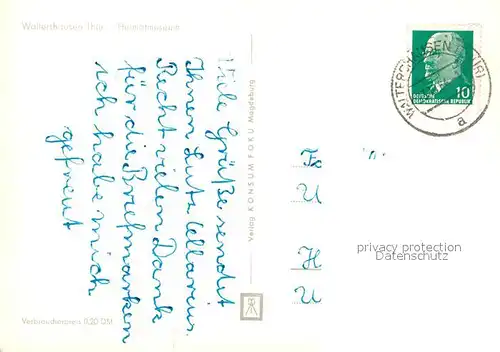 Waltershausen Thür. Heimatmuseum
Viele Grüße sendet
Ihnen Lutz
Recht vielen Dank
für die Briefmarken
ich habe mich
gefreut
Verlag KONSUM FOKU Magdeburg
Verbraucherpreis 0,20 DM
WALTERSHAUSEN
a
10
DEUTSCHE
DEMOKRATISCHE REPUBLIK
U
H
U
privacy protection
AnsichtskartenHandel.de